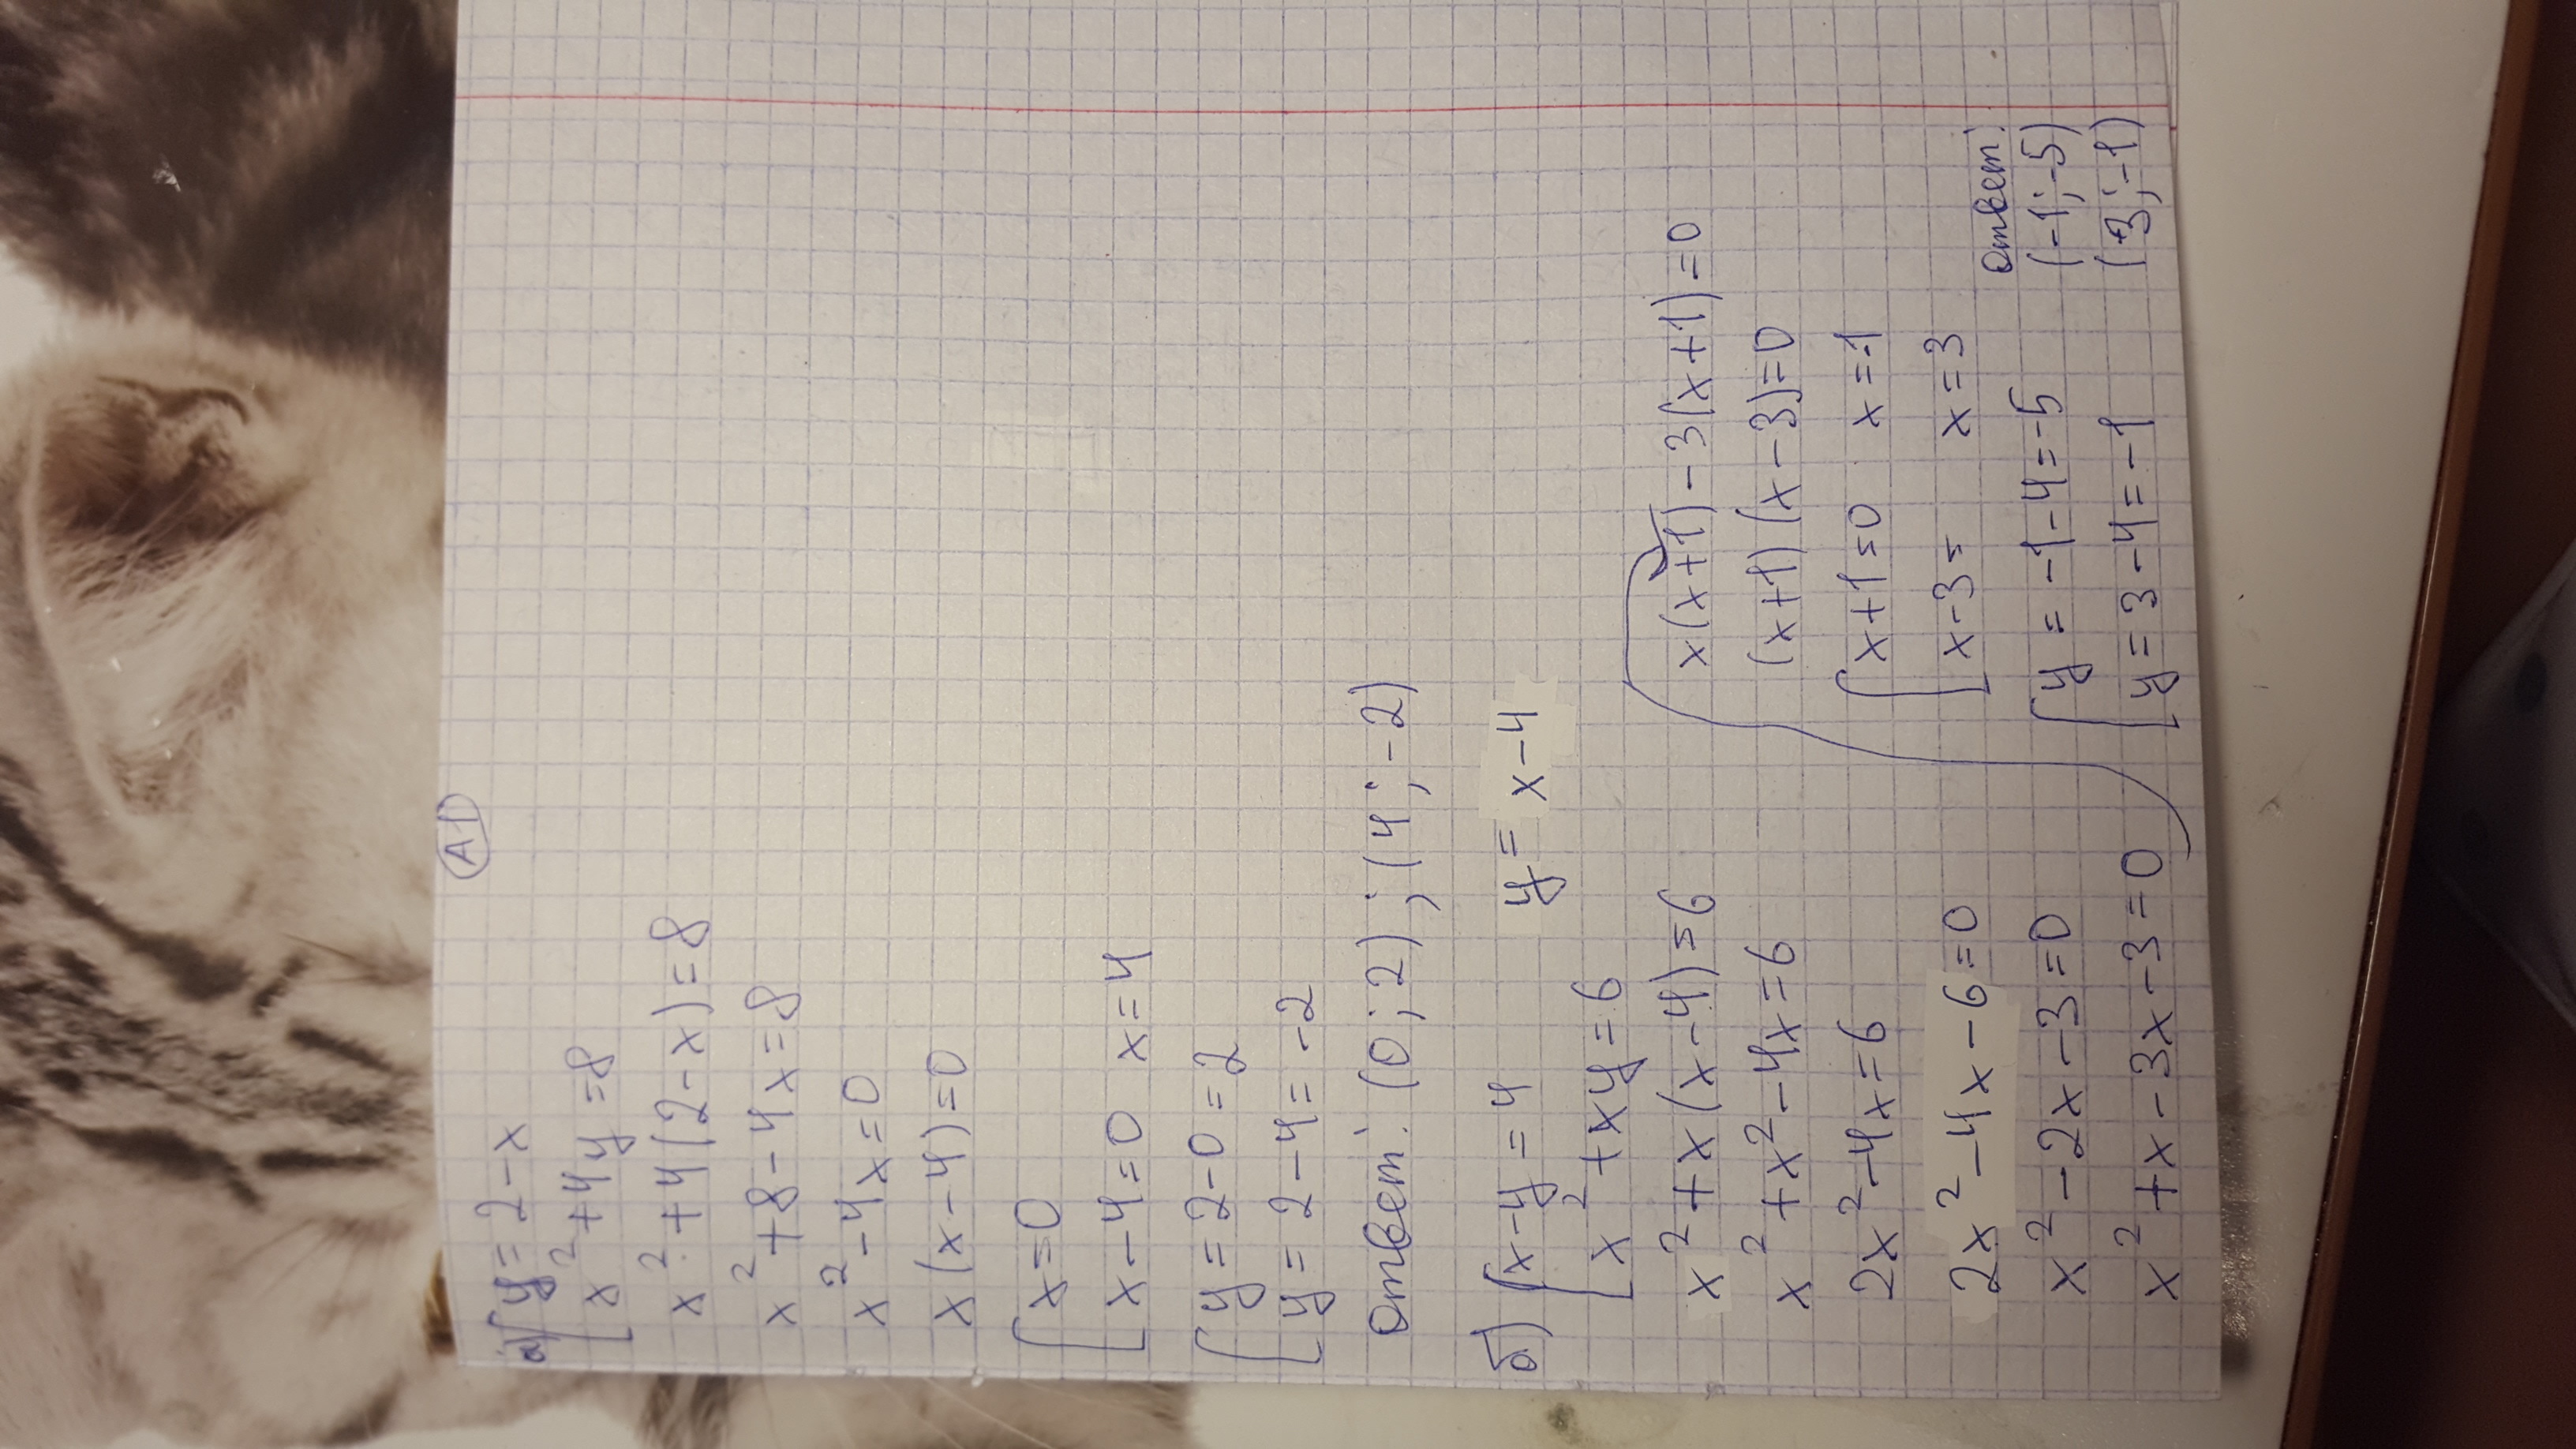 АД
а) { y = 2 - x
x² + 4y = 8
x² + 4(2 - x) = 8
x² + 8 - 4x = 8
x² - 4x = 0
x(x - 4) = 0
[ x = 0
x - 4 = 0 x = 4
[ y = 2 - 0 = 2
y = 2 - 4 = -2
Ответ: (0; 2); (4; -2)
б) { x - y = 4 y = x - 4
x² + xy = 6
x² + x(x - 4) = 6
x² + x² - 4x = 6
2x² - 4x = 6
2x² - 4x - 6 = 0
x² - 2x - 3 = 0
x² + x - 3x - 3 = 0
x(x + 1) - 3(x + 1) = 0
(x + 1)(x - 3) = 0
[ x + 1 = 0 x = -1
x - 3 = x = 3
[ y = -1 - 4 = -5
y = 3 - 4 = -1
Ответ:
(-1; -5)
(+3; -1)